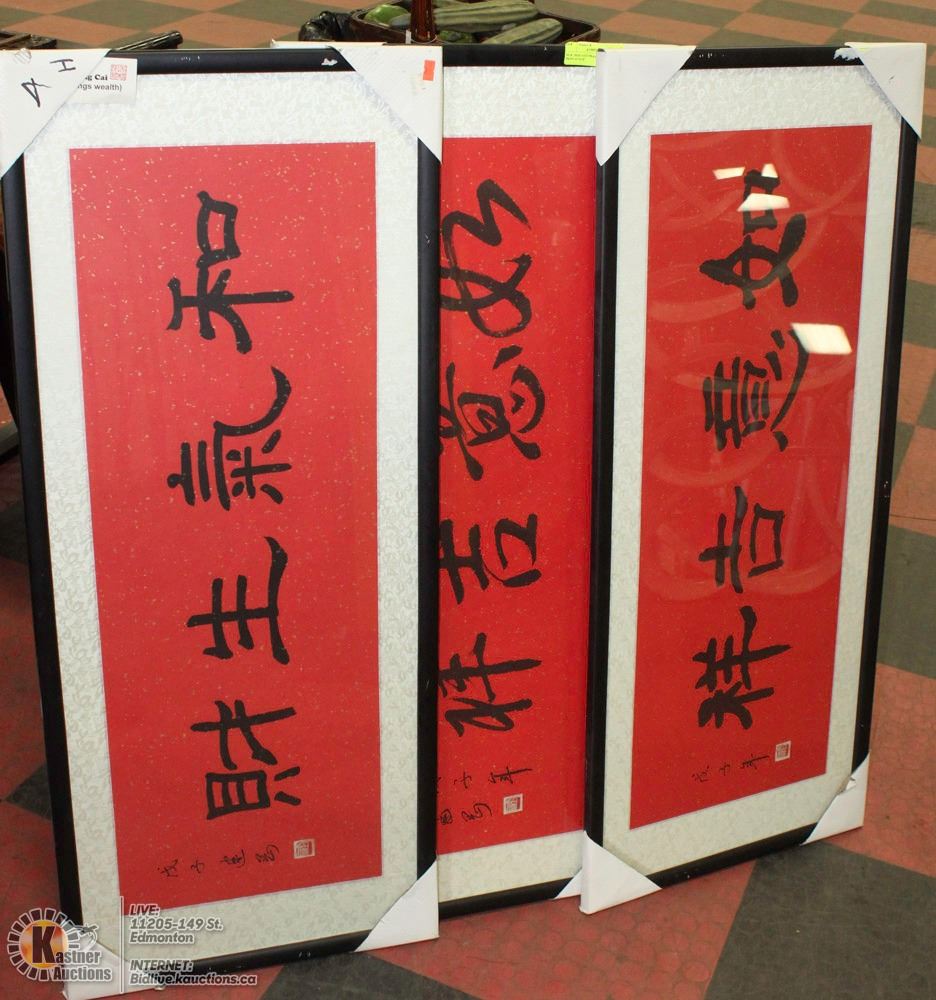 ng Cai
ngs wealth)
和氣生財
戊子
如意吉祥
子年
如意吉祥
戊子年
Kastner
Auctions
LIVE:
11205-149 St.
Edmonton
INTERNET:
Bidlive.kauctions.ca